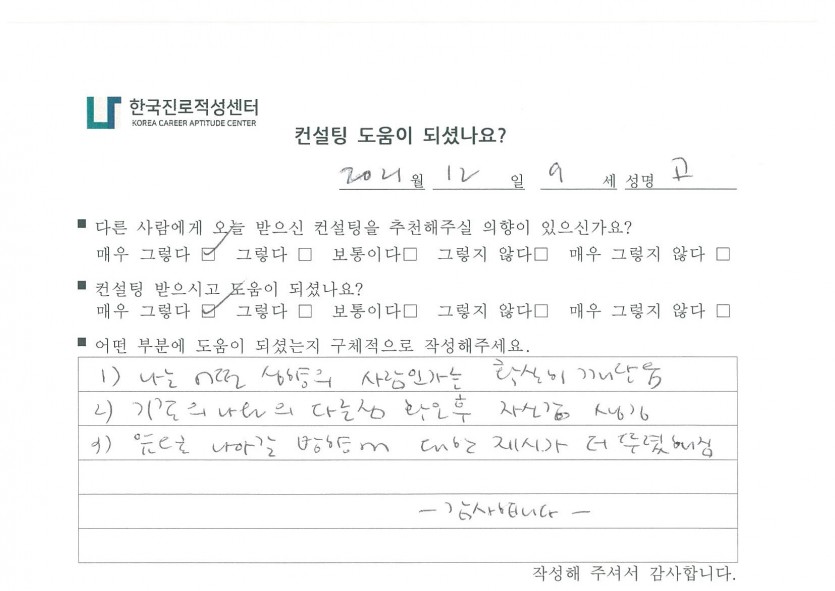 한국진로적성센터
KOREA CAREER APTITUDE CENTER
컨설팅 도움이 되셨나요?
2021 월 12 일 9 세 성명 고
■ 다른 사람에게 오늘 받으신 컨설팅을 추천해주실 의향이 있으신가요?
매우 그렇다 ☑ 그렇다 □ 보통이다□ 그렇지 않다□ 매우 그렇지 않다 □
■ 컨설팅 받으시고 도움이 되셨나요?
매우 그렇다 ☑ 그렇다 □ 보통이다□ 그렇지 않다□ 매우 그렇지 않다 □
■ 어떤 부분에 도움이 되셨는지 구체적으로 작성해주세요.
1) 나는 어떤 성향의 사람인가를 확실히 깨달음
2) 기존의 나와의 다른점 확인후 자신감 생김
3) 앞으로 나아갈 방향에 대한 제시가 더 뚜렸해짐
- 감사합니다 -
작성해 주셔서 감사합니다.